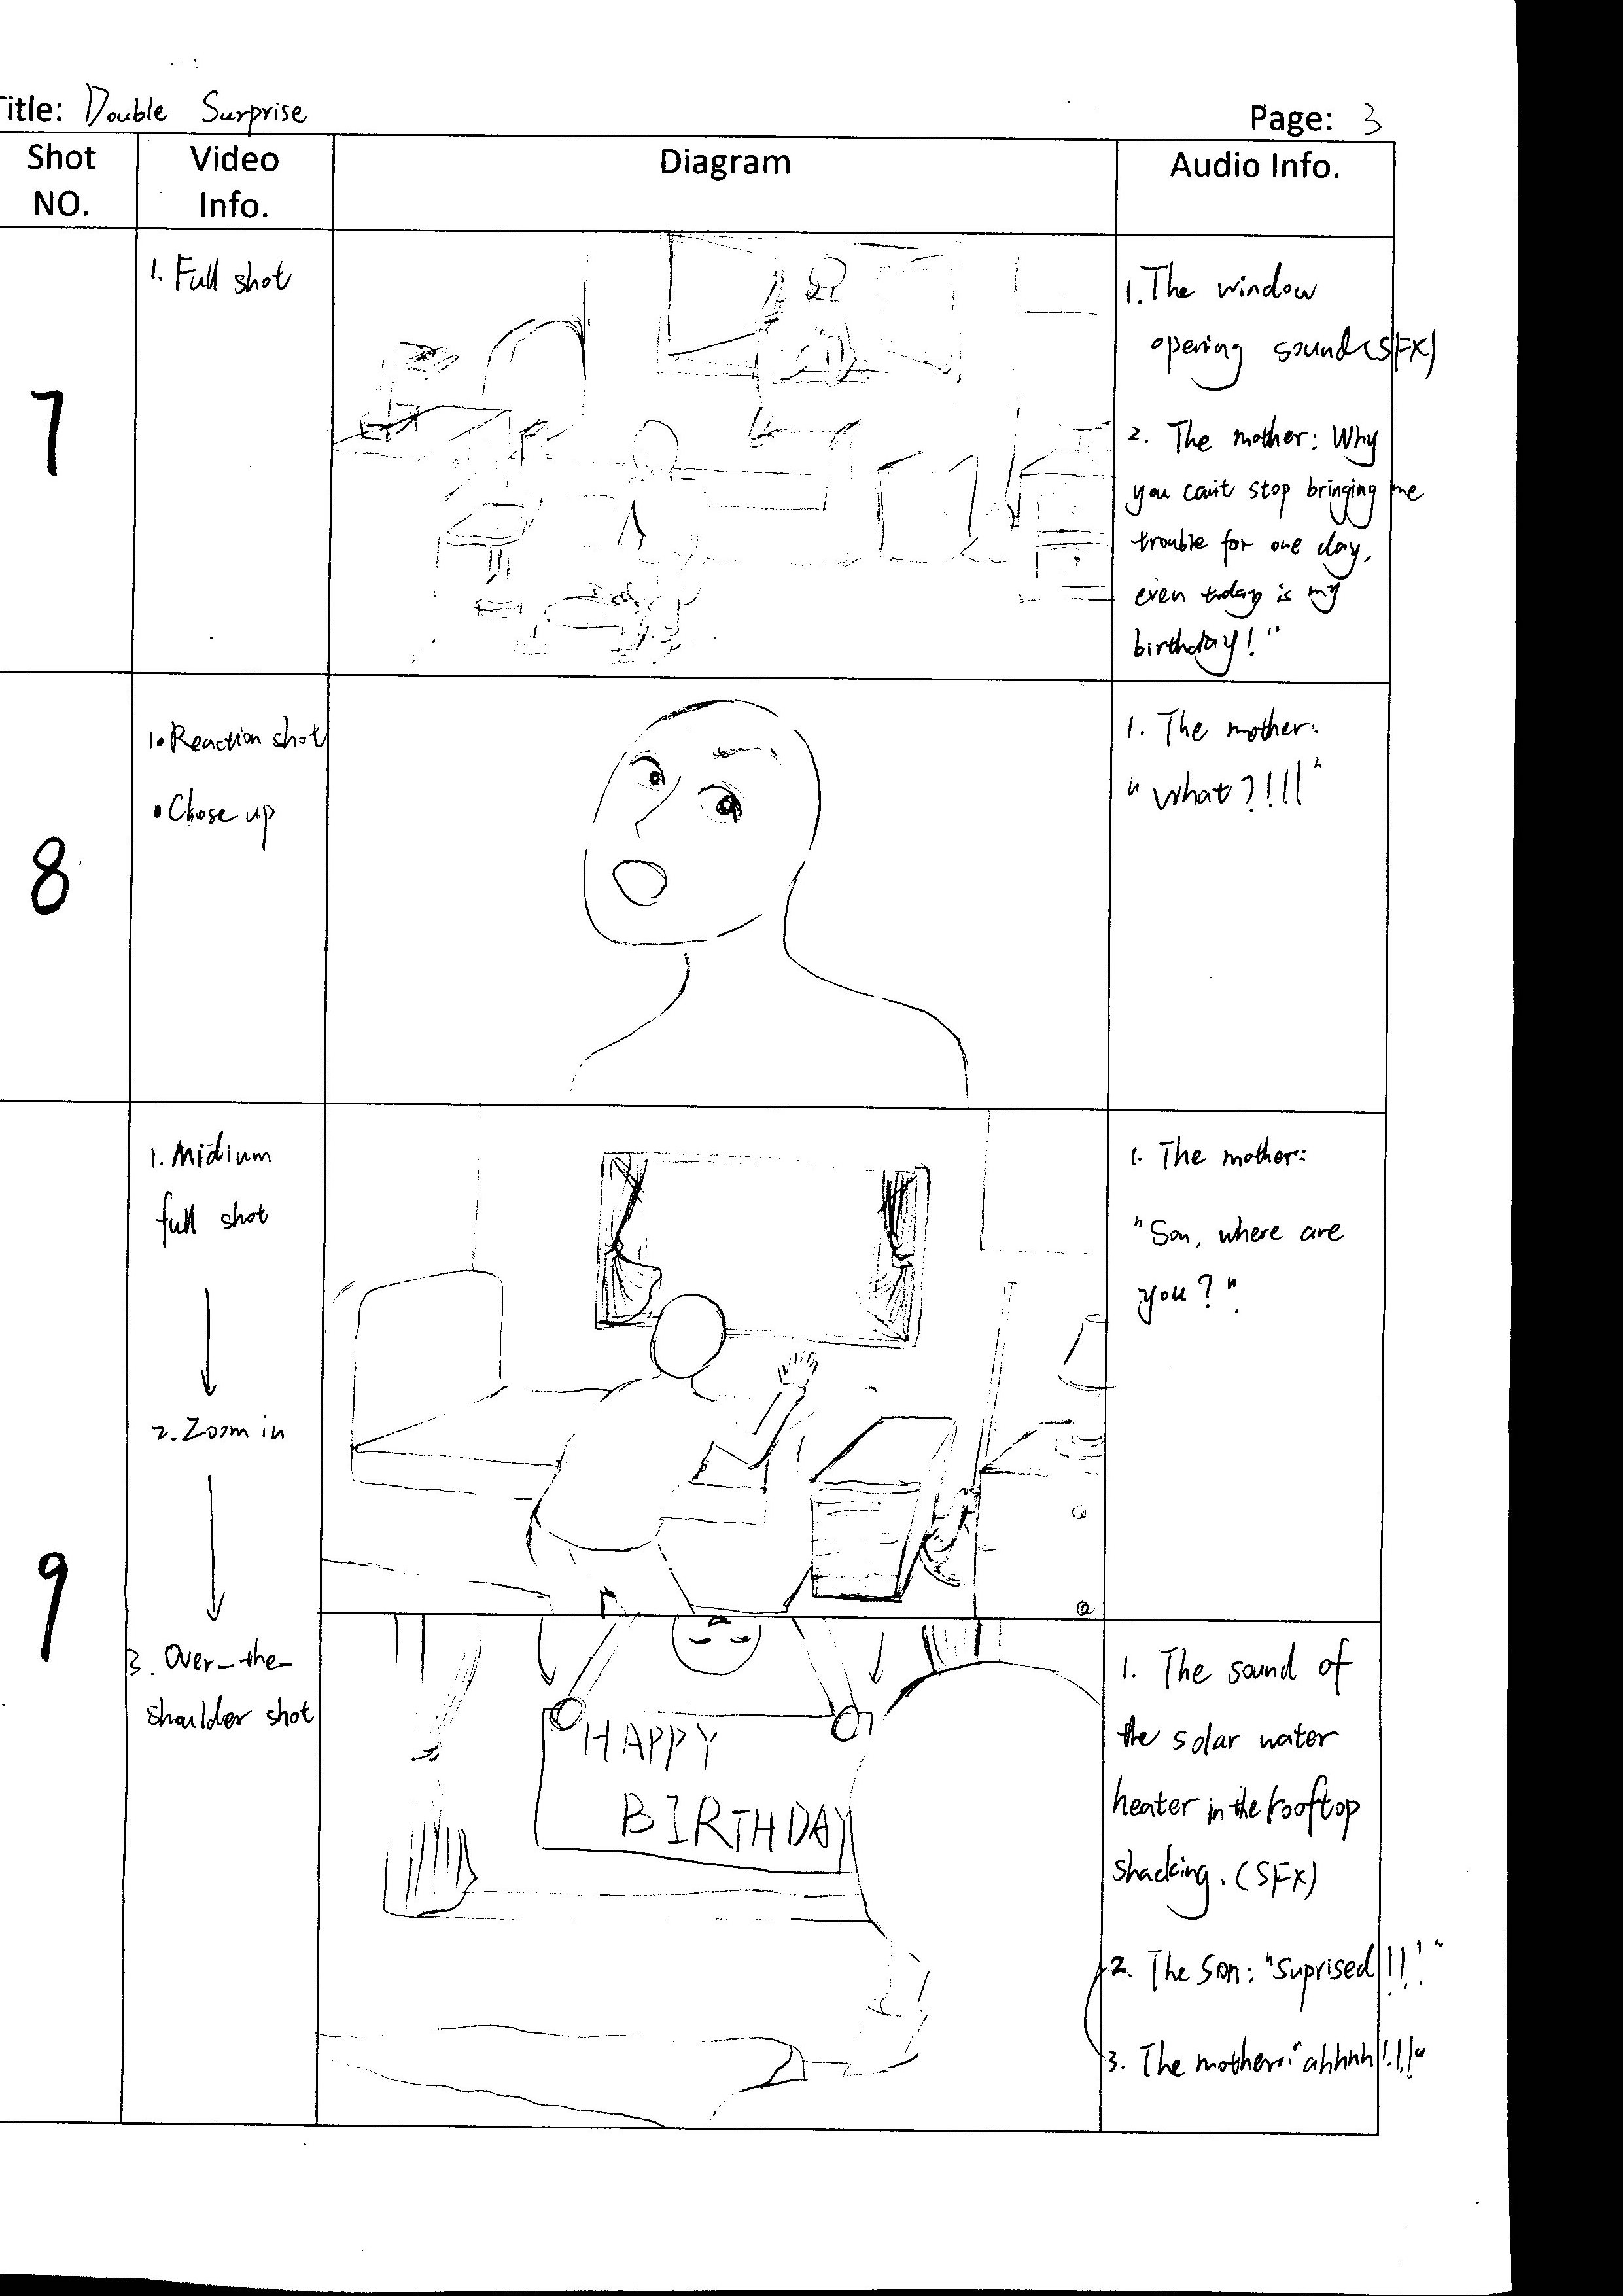 Title: Double Surprise
Page: 3
Shot
NO.
Video
Info.
Diagram
Audio Info.
7
1. Full shot
1. The window
opening sound (SFX)
2. The mother: Why
you can't stop bringing me
trouble for one day,
even today is my
birthday!"
8
1. Reaction shot
• Close up
1. The mother:
"What?!!!"
9
1. Midium
full shot
2. Zoom in
3. Over-the-
shoulder shot
1. The mother:
"Son, where are
you?".
HAPPY
BIRTHDAY
1. The sound of
the solar water
heater in the rooftop
shacking. (SFX)
2. The Son: "Suprised!!!"
3. The mother: "ahhhh!!!"